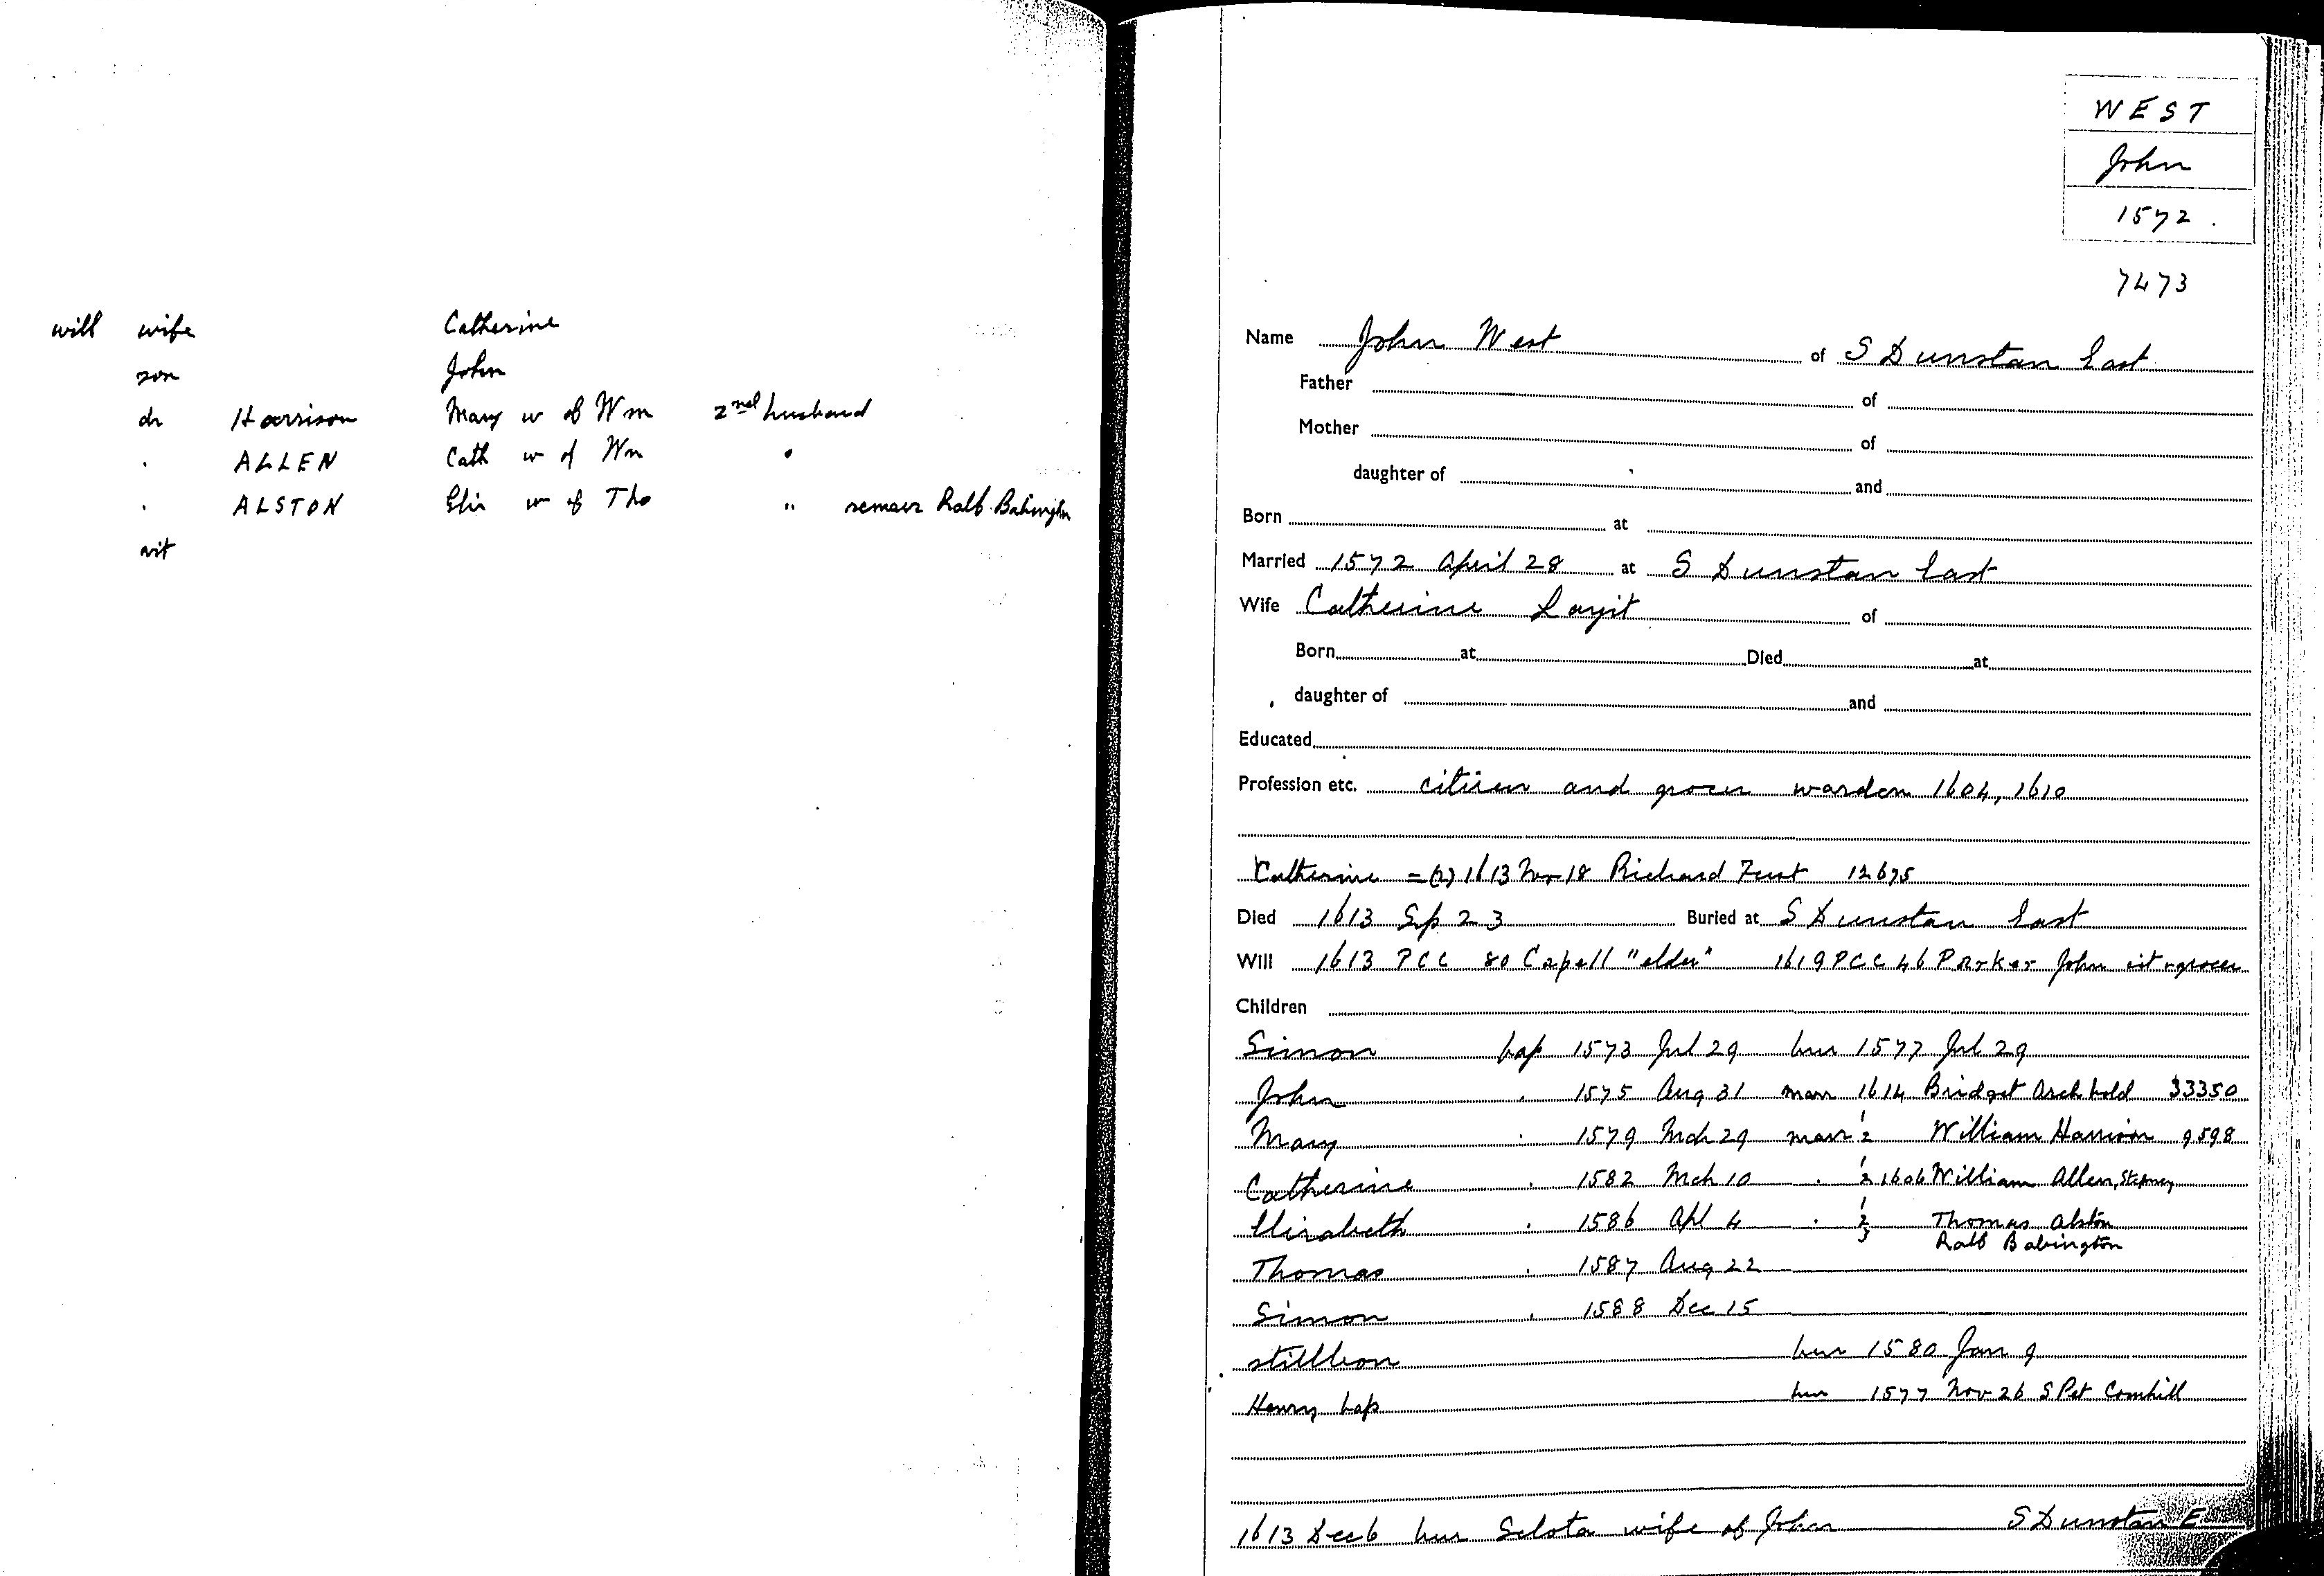 will wife Catherine
son John
dr Harrison Mary w of Wm 2nd husband
. ALLEN Cath w of Wm "
. ALSTON Eliz w of Tho " remarr Ralf Babington
wit
WEST
John
1572
7473
Name John West of S Dunstan East
Father of
Mother of
daughter of and
Born at
Married 1572 April 28 at S Dunstan East
Wife Catherine of
Born at Died at
daughter of and
Educated
Profession etc. citizen and grocer warden 1604, 1610
Catherine = (2) 1613 Nov 18 Richard 12675
Died 1613 Sp 23 Buried at S Dunstan East
Will 1613 PCC 80 Capell "elder" 1619 PCC 46 Parker John cit + grocer
Children
Simon bap 1573 Jul 29 bur 1577 Jul 29
John . 1575 Aug 31 marr 1614 Bridget Archbold 33350
Mary . 1579 Mch 29 marr 1 2 William Harrison 9598
Catherine . 1582 Mch 10 . 1 2 1606 William Allen, Stepney
Elizabeth . 1586 Apl 4 . 1 2 Thomas Alston
3 Ralf Babington
Thomas . 1587 Aug 22
Simon . 1588 Dec 15
stillborn bur 1580 Jan 9
Henry bap bur 1577 Nov 26 S Pet Cornhill
1613 Dec 6 bur wife of John S Dunstan E